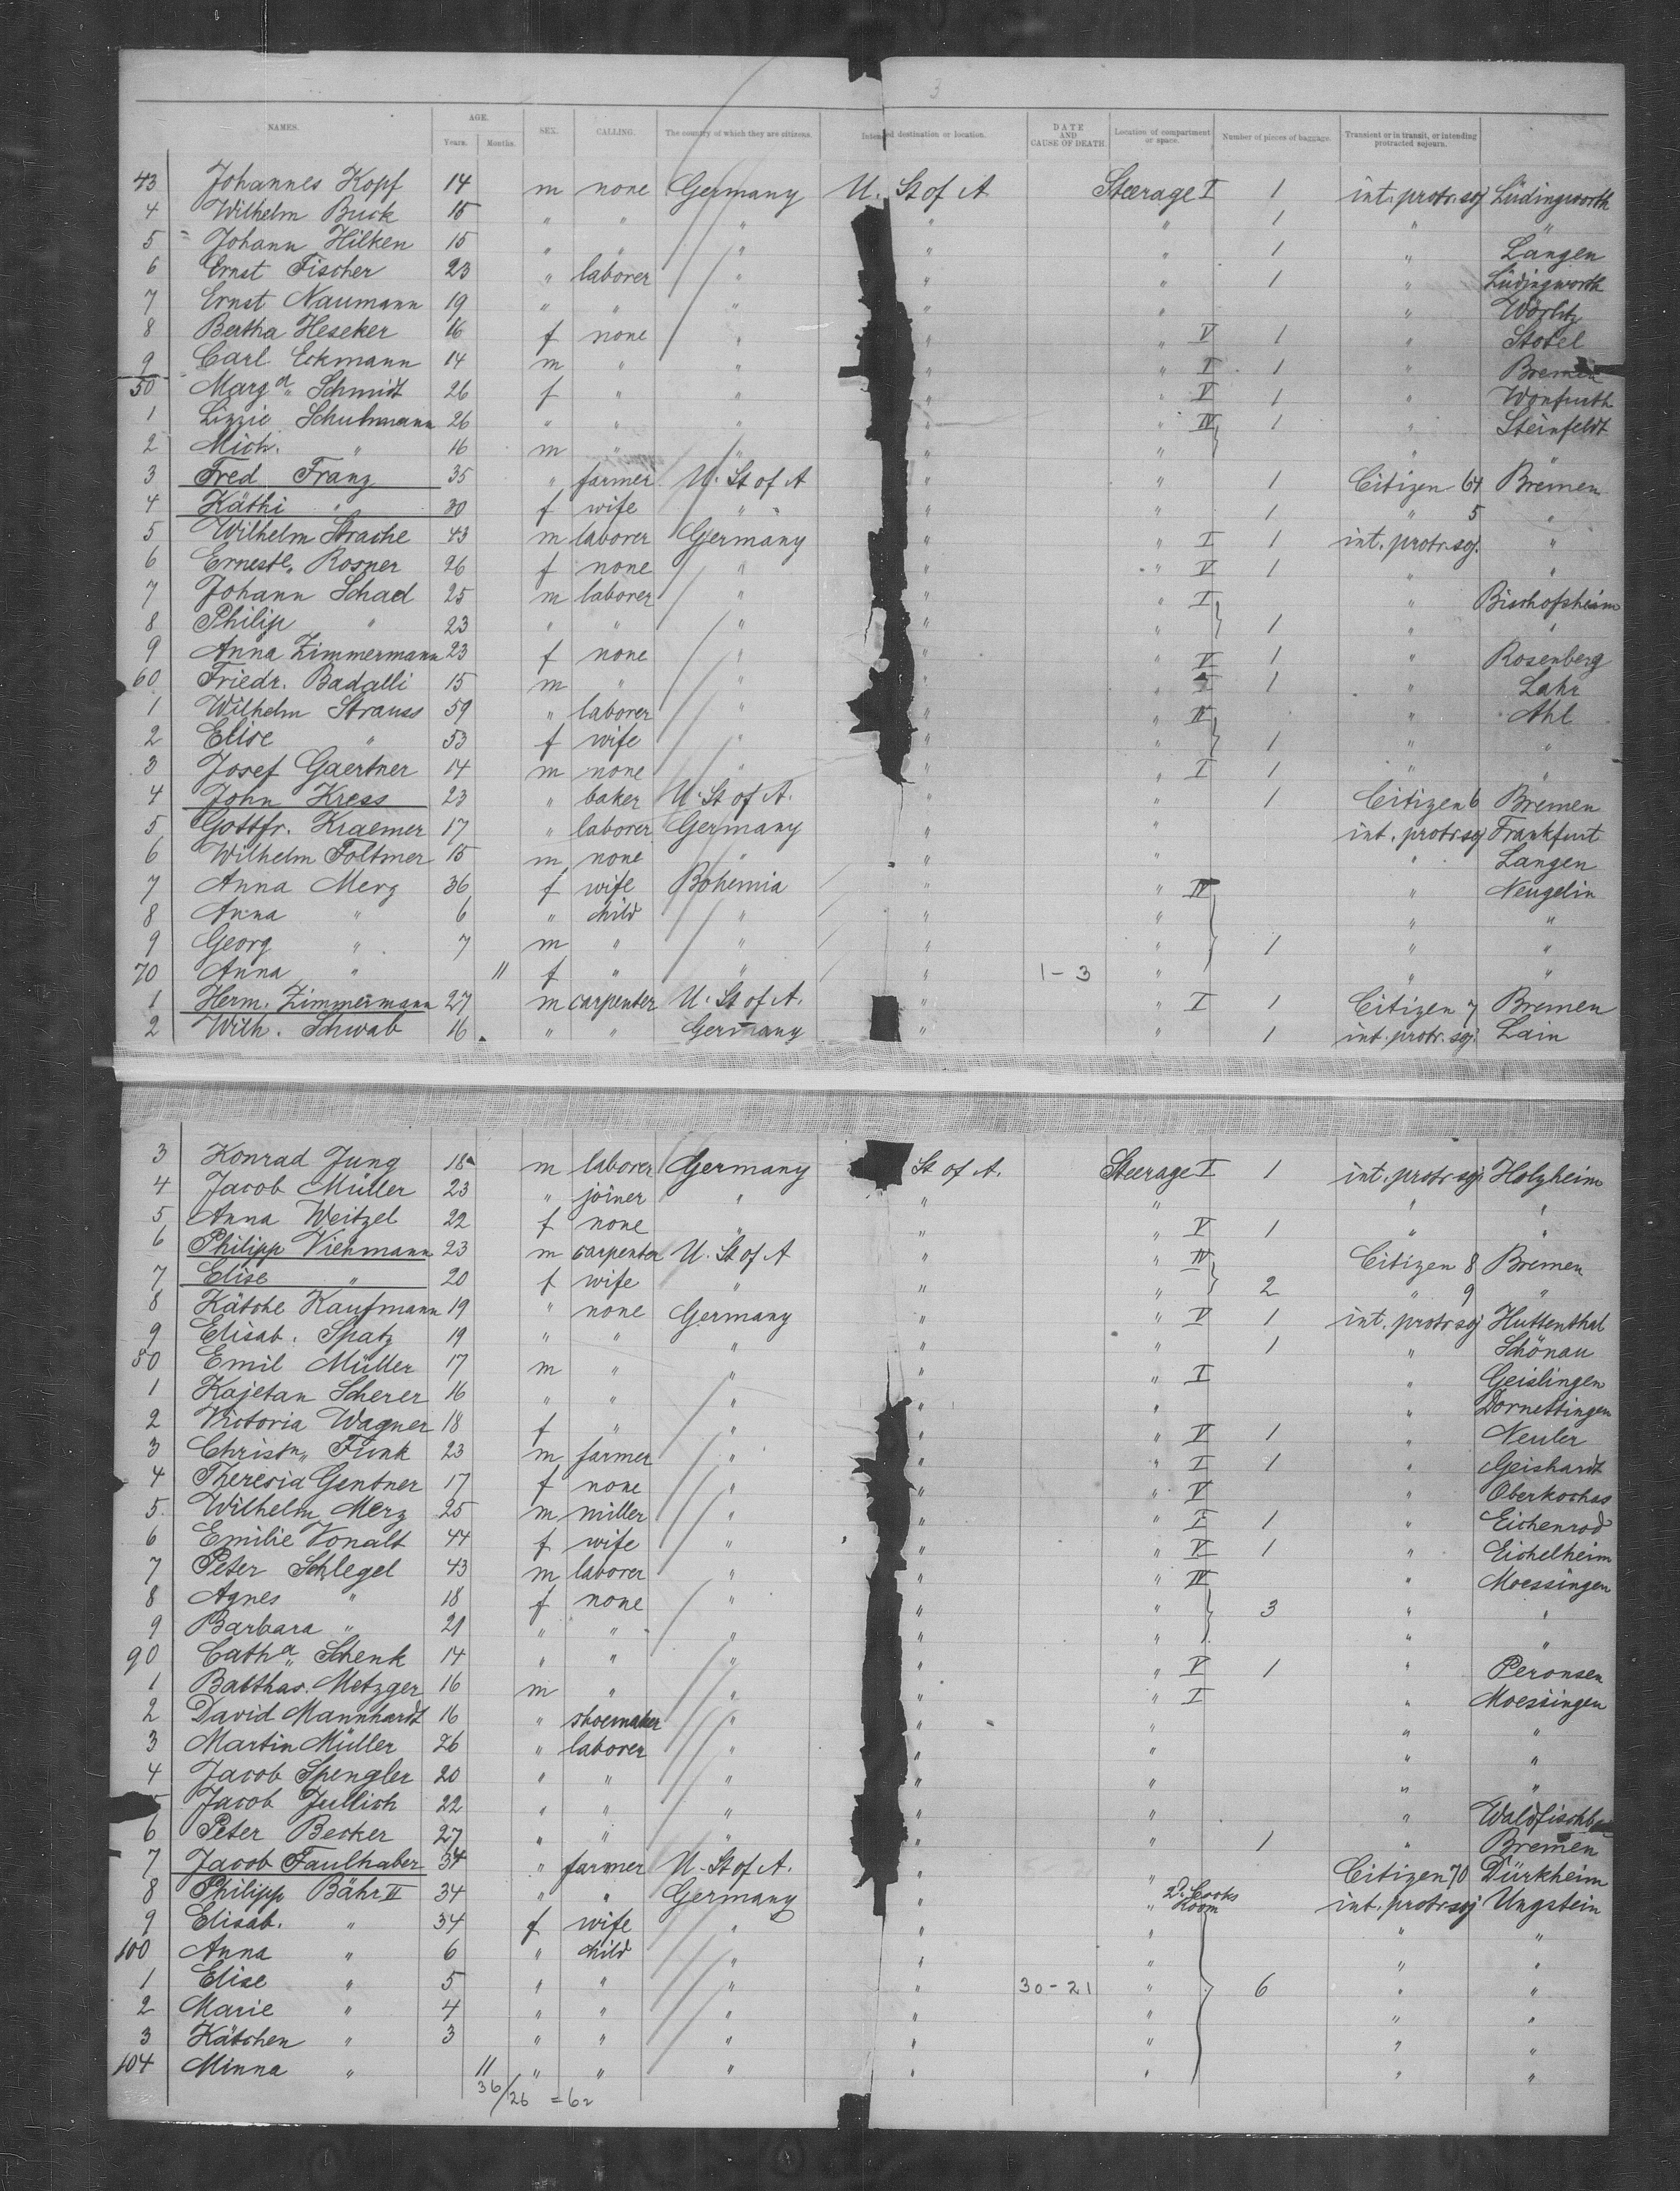 3
NAMES. AGE. Years. Months. SEX. CALLING. The country of which they are citizens. Intended destination or location. DATE AND CAUSE OF DEATH. Location of compartment or space. Number of pieces of baggage. Transient or in transit, or intending protracted sojourn.
43 Johannes Kopf 14 m none Germany U. St of A Steerage I 1 int. protr. soj Lüdingworth
4 Wilhelm Buck 15 " " " " " 1 " "
5 Johann Hilken 15 " " " " " 1 " Langen
6 Ernst Fischer 23 " laborer " " " 1 " Lüdingworth
7 Ernst Naumann 19 " " " " " " Wörlitz
8 Bertha Heseker 16 f none " " " V 1 " Stotel
9 Carl Eckmann 14 m " " " " I 1 " Bremen
50 Marga Schmidt 26 f " " " " V 1 " Wonfurth
1 Lizzie Schuhmann 26 " " " " " IV 1 " Steinfeldt
2 Mich. " 16 m " " " " " "
3 Fred Franz 35 " farmer U. St of A " " 1 Citizen 64 Bremen
4 Käthi " 30 f wife " " " 1 " 5 "
5 Wilhelm Strache 43 m laborer Germany " " I 1 int. protr. soj. "
6 Ernestle Rosner 26 f none " " " V 1 " "
7 Johann Schad 25 m laborer " " " I " Bischofsheim
8 Philip " 23 " " " " " 1 " "
9 Anna Zimmermann 23 f none " " " V 1 " Rosenberg
60 Friedr. Badalli 15 m " " " " I 1 " Lahr
1 Wilhelm Strauss 59 " laborer " " " IV " Ahl
2 Elise " 53 f wife " " " 1 " "
3 Josef Gaertner 14 m none " " " I 1 " "
4 John Kress 23 " baker U. St of A. " " 1 Citizen 6 Bremen
5 Gottfr. Kraemer 17 " laborer Germany " " int. protr soj Frankfurt
6 Wilhelm Foltmer 15 m none " " " " Langen
7 Anna Merz 36 f wife Bohemia " " IV " Neugelin
8 Anna " 6 " child " " " " "
9 Georg " 7 m " " " " 1 " "
70 Anna " 11 f " " " 1-3 " " "
1 Herm. Zimmermann 27 m carpenter U. St of A. " " I 1 Citizen 7 Bremen
2 Wilh. Schwab 16 " " Germany " " 1 int. protr. soj. Lain
3 Konrad Jung 18 m laborer Germany St of A. Steerage I 1 int. protr soj. Holzheim
4 Jacob Müller 23 " joiner " " " " "
5 Anna Weitzel 22 f none " " " V 1 " "
6 Philipp Viehmann 23 m carpenter U. St of A " " IV Citizen 8 Bremen
7 Elise " 20 f wife " " " 2 " 9 "
8 Kätche Kaufmann 19 " none Germany " " V 1 int. protr soj Huttenthal
9 Elisab. Spatz 19 " " " " " 1 " Schönau
80 Emil Müller 17 m " " " " I " Geislingen
1 Kajetan Scherer 16 " " " " " " Dornettingen
2 Victoria Wagner 18 f " " " " V 1 " Neuler
3 Christn Funk 23 m farmer " " " I 1 " Geishardt
4 Theresia Gentner 17 f none " " " V " Oberkochas
5 Wilhelm Merz 25 m miller " " " I 1 " Eichenrod
6 Emilie Vonalt 44 f wife " " " V 1 " Eichelheim
7 Peter Schlegel 43 m laborer " " " IV " Moessingen
8 Agnes " 18 f none " " " 3 " "
9 Barbara " 21 " " " " " " "
90 Catha Schenk 14 " " " " " V 1 " Peronsen
1 Balthas. Metzger 16 m " " " " I " Moessingen
2 David Mannhardt 16 " shoemaker " " " " "
3 Martin Müller 26 " laborer " " " " "
4 Jacob Spengler 20 " " " " " " "
Jacob Jullich 22 " " " " " " Waldfischb
6 Peter Becker 27 " " " " " 1 " Bremen
7 Jacob Faulhaber 34 " farmer U. St of A. " " Citizen 70 Dürkheim
8 Philipp Bähr II 34 " " Germany " " 2. Cooks Room int. protr soj Ungstein
9 Elisab. " 34 f wife " " " " "
100 Anna " 6 " child " " " " "
1 Elise " 5 " " " " 30-21 " 6 " "
2 Marie " 4 " " " " " " "
3 Kätchen " 3 " " " " " " "
104 Minna " 11 " " " " " " "
36/26 = 62